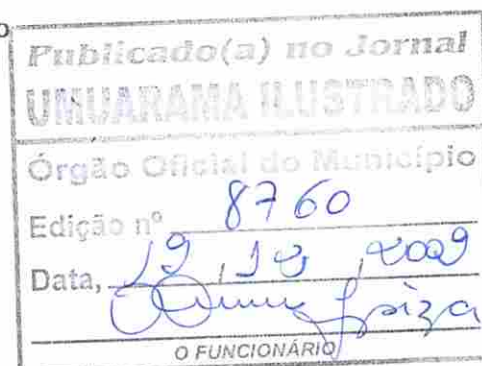 o
Publicado(a) no Jornal
UMUARAMA ILUSTRADO
Órgão Oficial do Município
Edição nº 8760
Data, 19, 12, 2009
O FUNCIONÁRIO